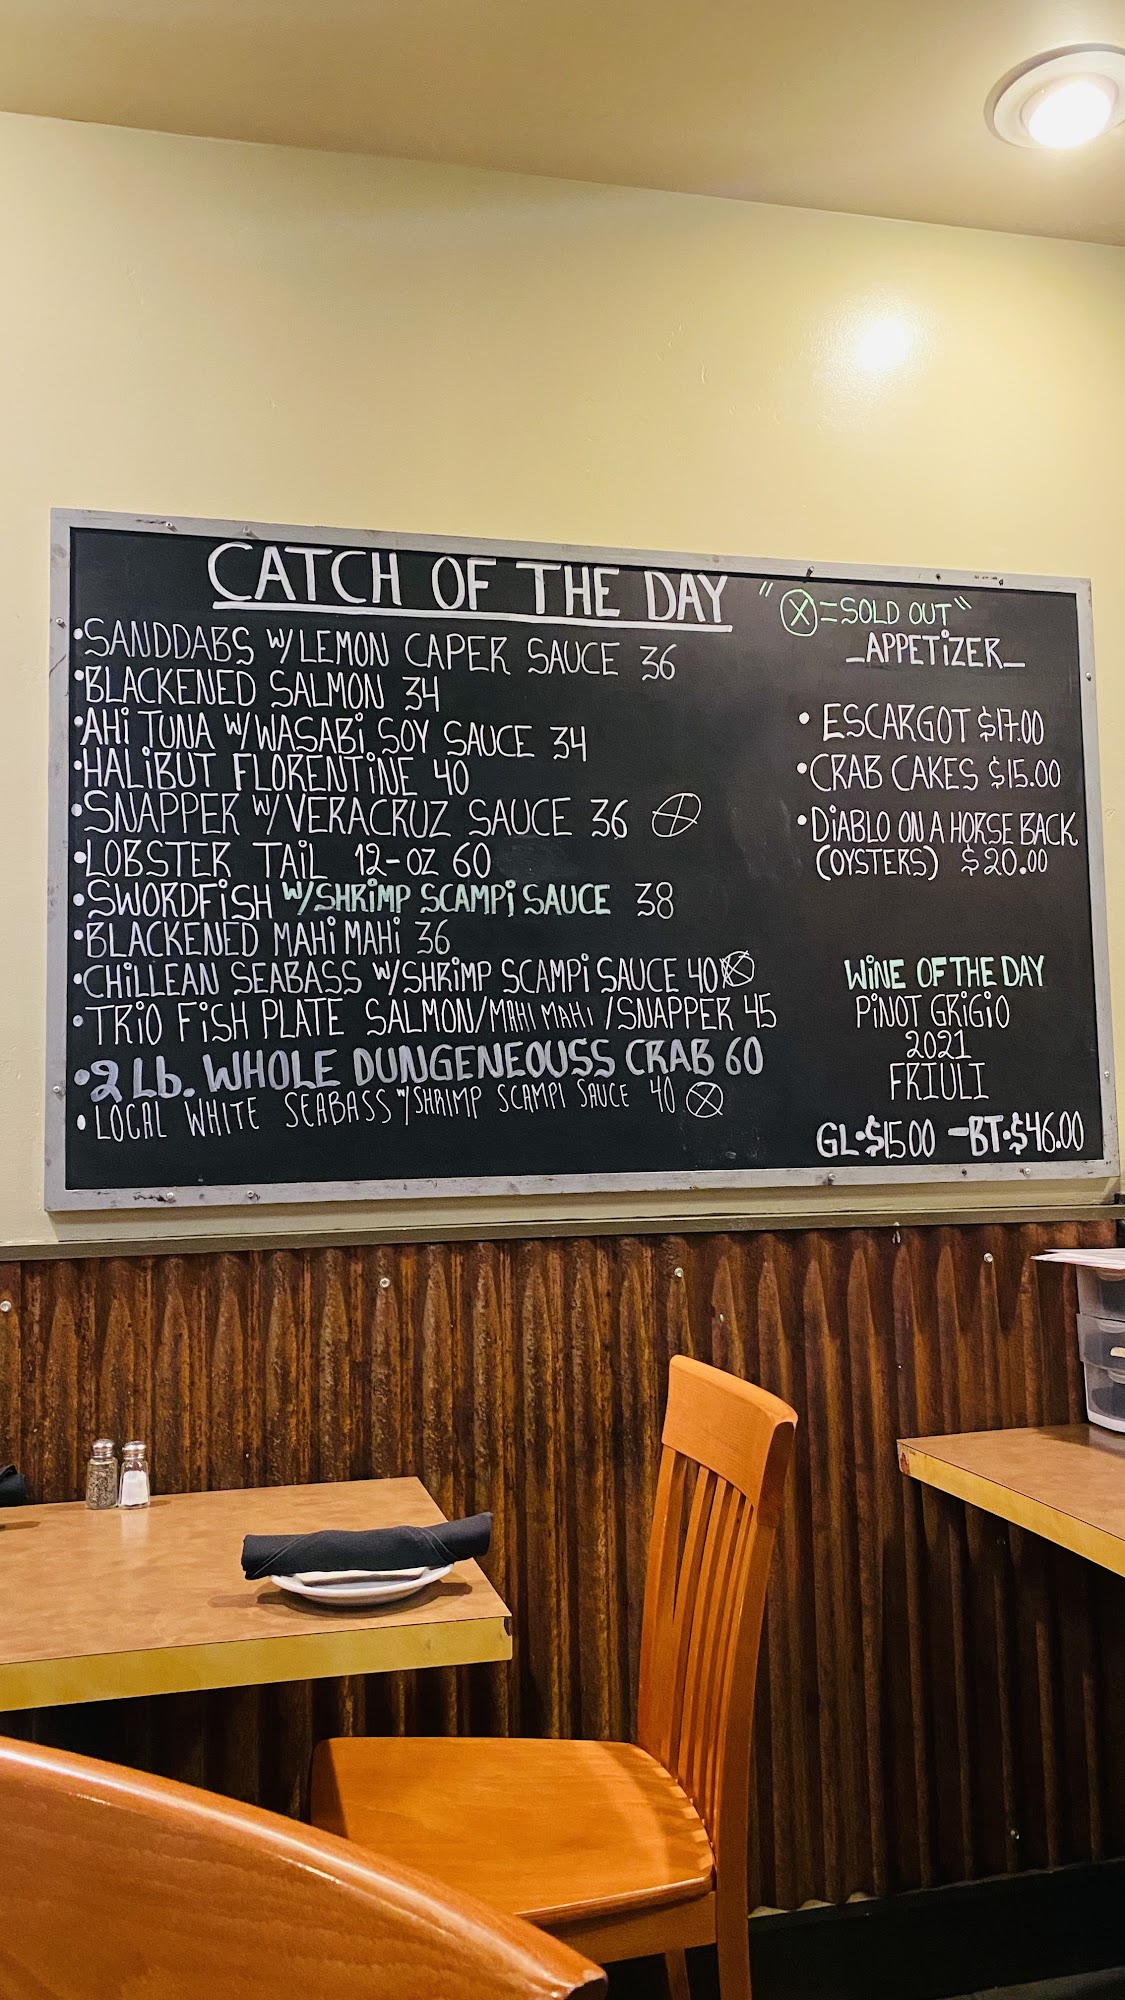 CATCH OF THE DAY
"Ⓧ=SOLD OUT"
•SANDDABS W/LEMON CAPER SAUCE 36
•BLACKENED SALMON 34
•AHi TUNA W/WASABi SOY SAUCE 34
•HALiBUT FLORENTiNE 40
•SNAPPER W/VERACRUZ SAUCE 36 Ⓧ
•LOBSTER TAiL 12-OZ 60
•SWORDFiSH W/SHRiMP SCAMPi SAUCE 38
•BLACKENED MAHi MAHi 36
•CHiLLEAN SEABASS W/SHRiMP SCAMPi SAUCE 40 Ⓧ
•TRiO FiSH PLATE SALMON/MAHI MAHI/SNAPPER 45
•2 Lb. WHOLE DUNGENEOUSS CRAB 60
•LOCAL WHITE SEABASS W/SHRIMP SCAMPI SAUCE 40 Ⓧ
_APPETiZER_
•ESCARGOT $17.00
•CRAB CAKES $15.00
•DiABLO ON A HORSE BACK
(OYSTERS) $20.00
WiNE OF THE DAY
PiNOT GRiGiO
2021
FRIULI
GL•$15.00 -BT•$46.00